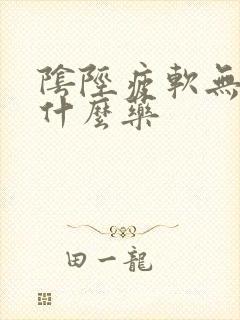 陰陘疲軟無
什麼藥
田一龍